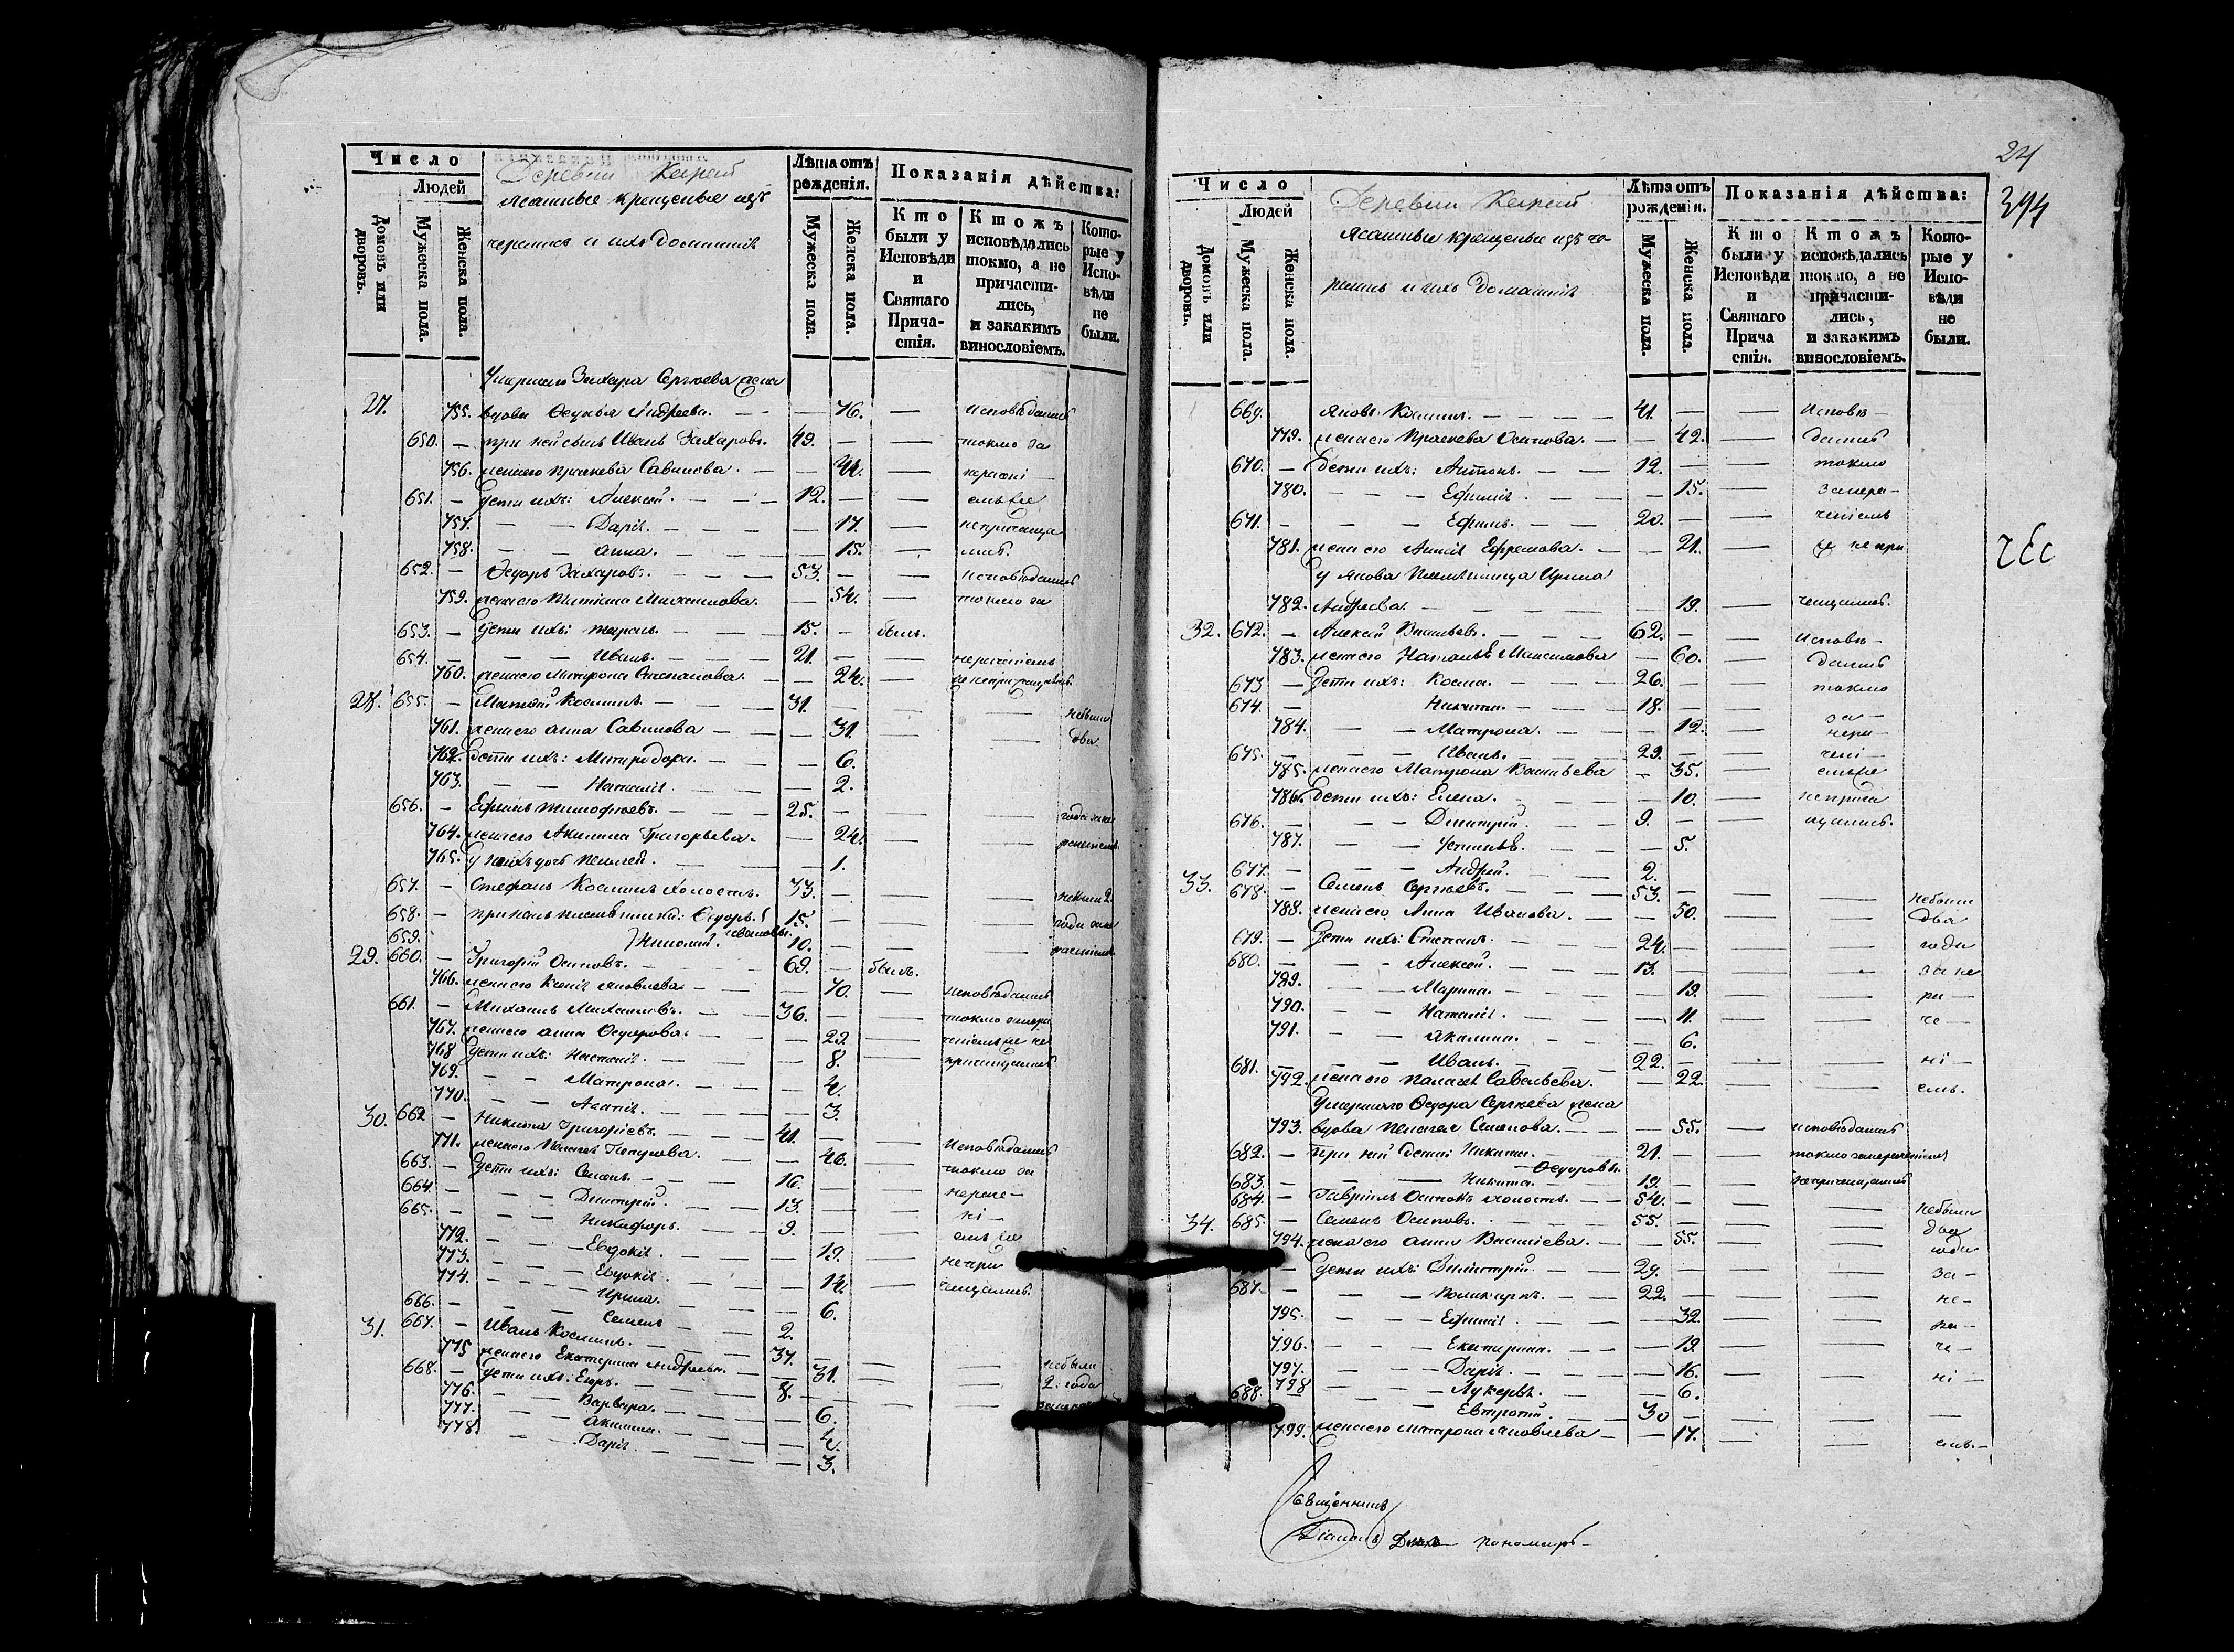 Число
Людей
Домовъ или дворовъ.
Мужеска пола.
Женска пола.
Деревни
ясашные крещеные изъ
черемисъ и ихъ домашніе
Лѣта отъ рожденія.
Мужеска пола.
Женска пола.
Показанія дѣйства:
Кто были у Исповѣди и Святаго Причастія.
Ктожъ исповѣдались токмо, а не причастились, и закакимъ винословіемъ.
Которые у Исповѣди не были.
Умершаго Захара Сергѣева жена
27. 755. вдова Ѳедосья Андреева. — 76. — исповѣдались
650. — при ней сынъ Иванъ Захаровъ. 49. — — токмо за
756. жена его Прасковья Савинова. — — 44. —
651. — дети ихъ: Алексей. — 12. — —
757. — — Дарія. — — 17. —
758. — — Анна. — — 15. —
652. — Ѳедоръ Захаровъ. — 53. — — исповѣдались
759. жена его Татіана Михаилова. — 54. — токмо за
653. — дети ихъ: — 15. — былъ.
654. — — Иванъ. — 21. — — нераченіемъ
760. жена его Матрона Степанова. — — 24. —
28. 655. — Матвей Косминъ. — 31. — — — небыли
761. жена его Анна Савинова — — 31. — — два
762. дети ихъ: Митродора. — — 6.
763. — — Наталія. — — 2.
656. — Ефимъ Тимофѣевъ. — 25. — года за не
764. жена его Акилина Григорьева. — 24. раченіемъ
765. у нихъ дочь Пелагея. — — 1.
657. — Стефанъ Косминъ холостъ. 33. — — — небыли 2.
658. — при немъ племянники: Ѳедоръ 15. — — — года за не
659. Николай Ивановы. 10. — — — раченіемъ
29. 660. — Григорій Осиповъ. — 69. — былъ.
766. жена его Ксенія Яковлева. — — 70. — исповѣдались
661. — Михаилъ Михаиловъ. — 36. — — токмо за нера
767. жена его Анна Ѳедорова. — — 29. — ченіемъ же не
768. дети ихъ: Настасія. — — 8. — причащались
769. — — Матрона. — — 4.
770. — — — — 3.
30. 662. — Никита Григорьевъ. — 41. — — исповѣдались
771. жена его Пелагея — — 46. — токмо за
663. — дети ихъ: Семенъ. — 16. — —
664. — — Дмитрій. — 13. — —
665. — — Никифоръ. — 9. — — емъ же
772. — — Евдокія. — — 19. — непри
773. — — Евдокія. — — 14. — чащались.
774. — — Ирина. — — 6.
666. — — Семенъ — 2.
31. 667. — Иванъ Косминъ. — 37. — — — небыли
775 жена его Екатерина Андреева. — 31. — — 2. года
668. — дети ихъ: Егоръ. — 8. — — —
776. — — Варвара. — — 6.
777. — — Акилина. — — 4.
778. — — Дарія. — — 3.
24
394
Число
Людей
Домовъ или дворовъ.
Мужеска пола.
Женска пола.
Деревни
Ясашные крещеные изъ че-
ремисъ и ихъ домашніе
Лѣта отъ рожденія.
Мужеска пола.
Женска пола.
Показанія дѣйства:
Кто были у Исповѣди и Святаго Причастія.
Ктожъ исповѣдались токмо, а не причастились, и закакимъ винословіемъ.
Которые у Исповѣди не были.
669. Яковъ Косминъ. — 41. — — исповѣ-
779. жена его Прасковья Осипова. — — 42. — дались
670. — дети ихъ: Антонъ. — 12. — — токмо
780. — — Ефимія. — — 15. — за нера-
671. — — Ефимъ. — 20. — — ченіемъ
781. жена его Анна Ефремова. — — 21. — же не при
у Якова племянница Ирина
782. Андреева. — — 19. — чащались.
32. 672. — Алексей Васильевъ. — 62. — — исповѣ-
783. жена его Наталья Максимова — 60. — дались
673 — дети ихъ: Косма. — 26. — — токмо
674. — Никита. — 18. — — за-
784. — Матрона. — — 12. — нера-
675. — — Иванъ. — 29. — — чені-
785. жена его Матрона Васильева — 35. — емъ же
786. дети ихъ: Елена. — — 10. — неприча
676. — — Дмитрій. — 9. — — щались.
787. — — Устинья. — — 5.
677. — — Андрей. — 2.
33. 678. — Семенъ Сергѣевъ. — 53. — — — небыли
788. жена его Анна Иванова. — — 50. — — два
679. — дети ихъ: Степанъ. — 24. — — — года
680. — — Алексей. — 13. — — — за не
789. — — Марина. — — 19. — — ра-
790. — — Наталія. — — 11. — — че-
791. — — Акилина. — — 6.
681. — — Иванъ. — 22. — — — ні-
792. жена его Пелагея Савельева. — 22. — — емъ.
Умершаго Ѳедора Сергѣева жена
793. вдова Пелагея Семенова. — — 55. — исповѣдались
682. — при ней дети: Никита — 21. — — токмо занераченіемъ
Ѳедоровы.
683. — — Никита. — 19. — — непричащались
684. — Гаврилъ Осиповъ холостъ. — 54. — — — небыли
34. 685. — Семенъ Осиповъ. — 55. — — — два
794. жена его Анна Васильева. — — 55. — — года
— дети ихъ: Димитрій. — 29. — — — за-
687. — — Поликарпъ. — 22. — — — не-
795. — — Ефимія. — — 32. — — ра-
796. — — Екатерина. — — 19. — — че-
797. — — Дарія. — — 16. — — ні-
798 — — Лукерья. — — 6.
688. — Евтропій. — 30 — — — —
799. жена его Матрона Яковлева — — 17. — — емъ.-
Священникъ
Діаконъ Дьячекъ пономарь